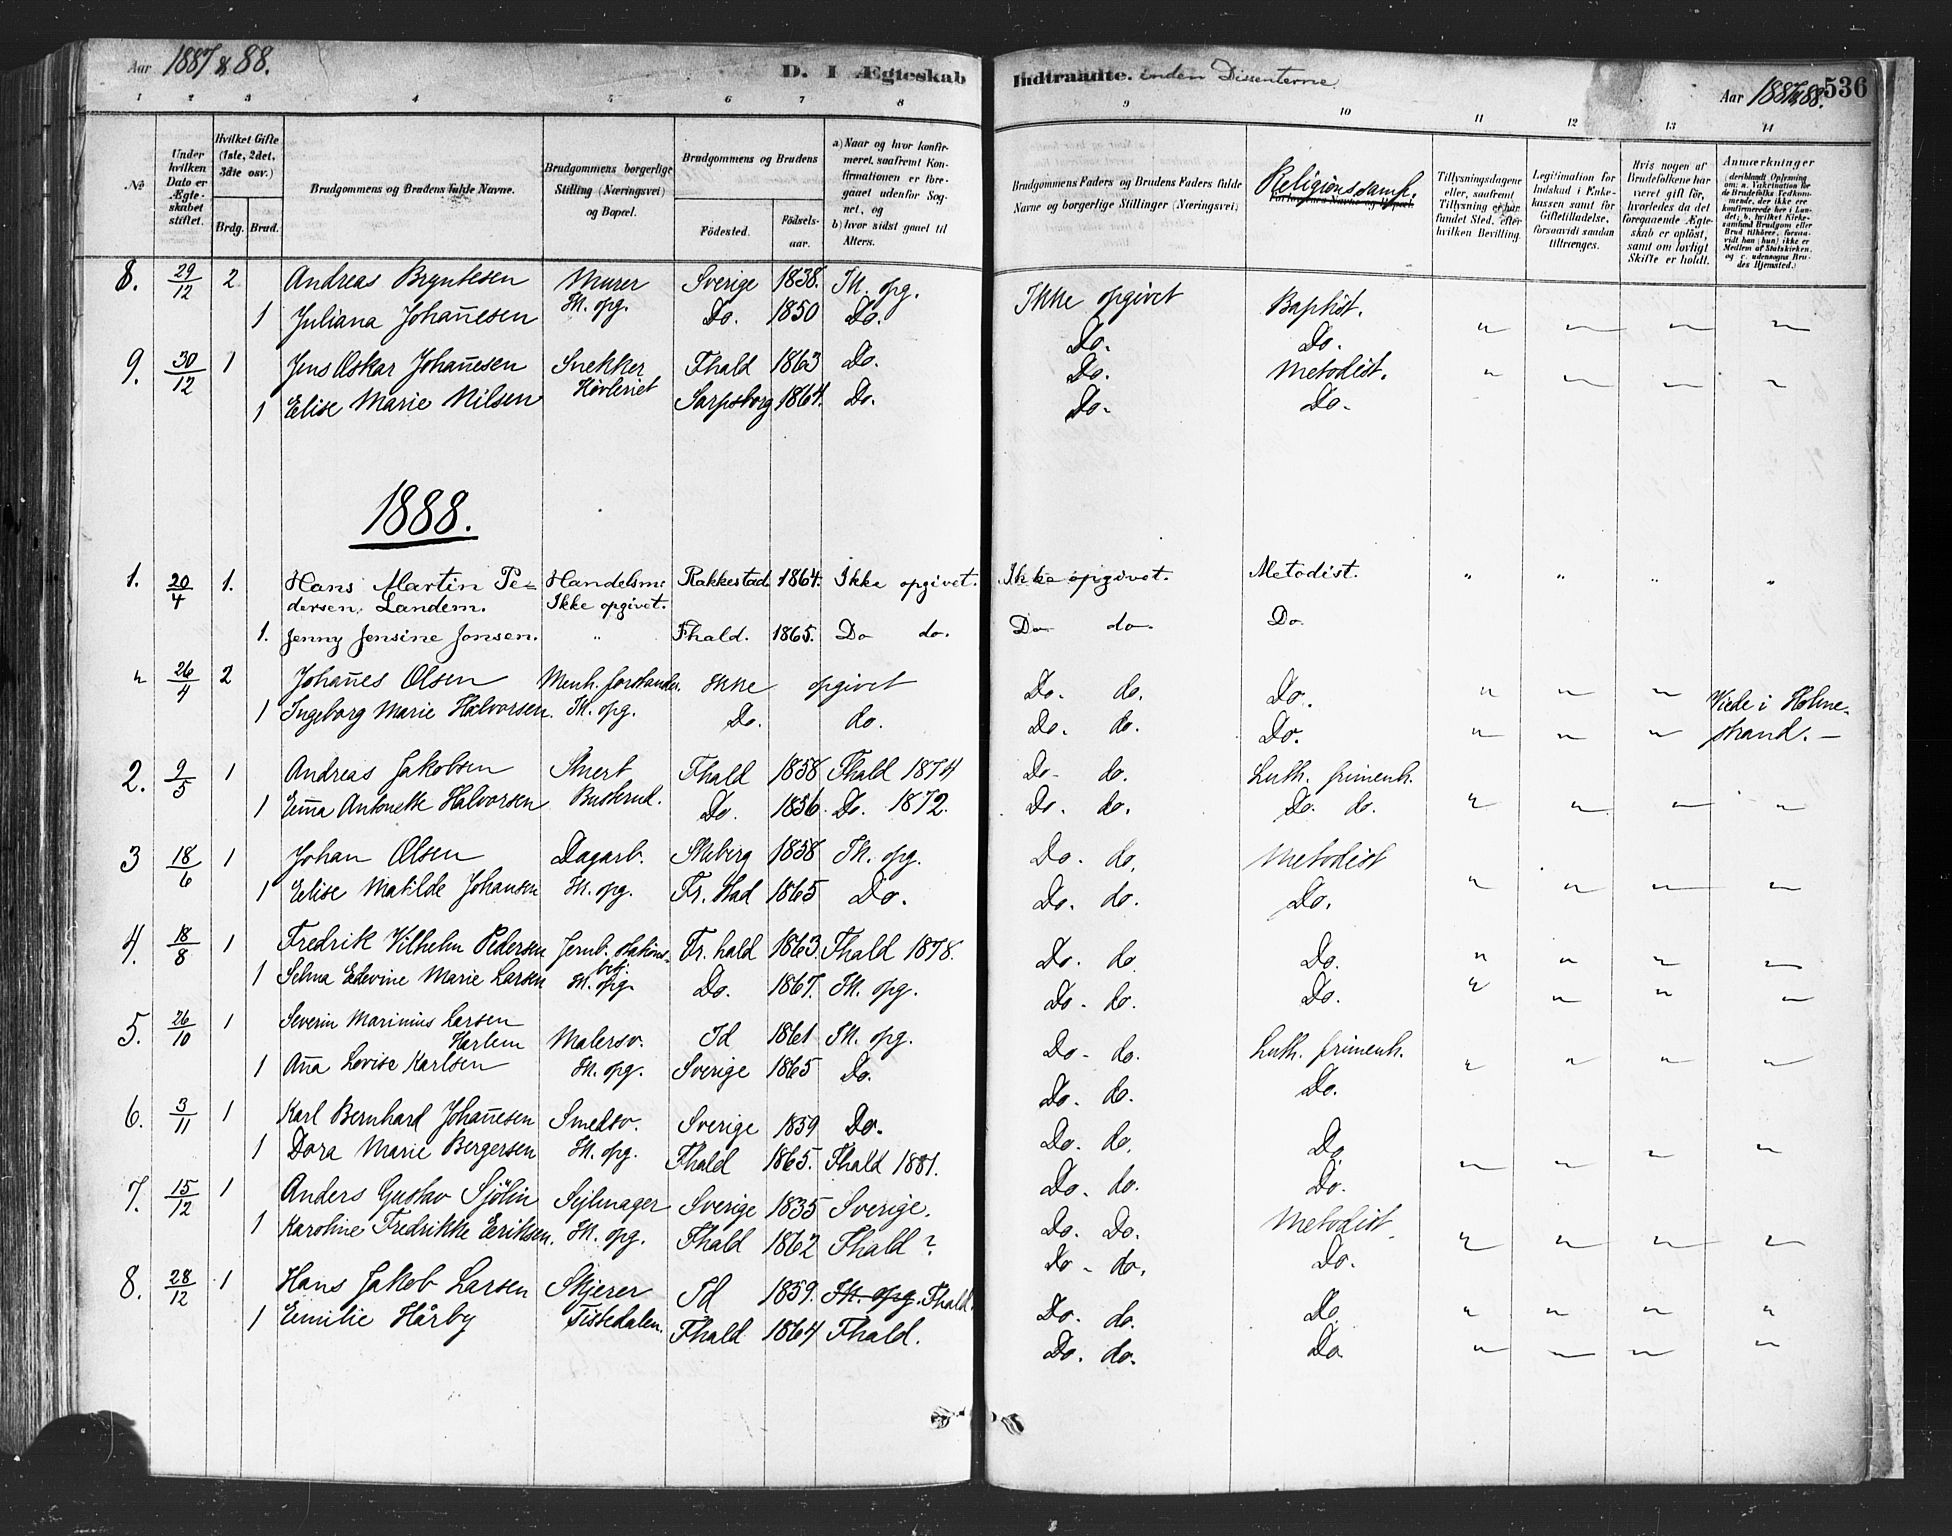 Aar 1887 & 88.
D. I Ægteskab Indtraadte. inden Dissenterne
Aar 1887 & 88. 536
1 2 3 4 5 6 7 8 9 10 11 12 13 14
No
Under hvilken Dato er Ægteskabet stiftet.
Hvilket Gifte (1ste, 2det, 3die osv.)
Brdg. Brud.
Brudgommens og Brudens fulde Navne.
Brudgommens borgerlige Stilling (Næringsvei) og Bopæl.
Brudgommens og Brudens
Födested. Födselsaar.
a) Naar og hvor konfirmeret, saafremt Konfirmationen er foregaaet udenfor Sognet, og
b) hvor sidst gaaet til Alters.
Brudgommens Faders og Brudens Faders fulde Navne og borgerlige Stillinger (Næringsvei)
Religionssamf.
Forlovernes Navne og Bopæl.
Tillysningsdagene eller, saafremt Tillysning ei har fundet Sted, efter hvilken Bevilling.
Legitimation for Indskud i Enkekassen samt for Giftetilladelse, forsaavidt saadan tiltrænges.
Hvis nogen af Brudefolkene har været gift før, hvorledes da det foregaaende Ægteskab er opløst, samt om lovligt Skifte er holdt.
Anmærkninger
8. 29/12 2 Andreas Bryntesen Murer Sverige 1838. Ik. opg. Ikke opgivet Baptist.
1 Juliana Johan̄esen Ik. opg. Do. 1850 Do. Do. Do. " " " "
9. 30/12 1 Jens Oskar Johan̄esen Snekker Fhald 1863 Do. Do. Metodist. " " " "
1 Elise Marie Nilsen Høvleriet Sarpsborg 1864. Do. Do. Do.
1888.
1. 20/4 1. Hans Martin Pe- Handelsm: Rakkestad 1864. Ikke opgivet. Ikke opgivet. Metodist. " " " "
dersen Landem. Ikke opgivet.
1. Jenny Jensine Jonsen. " Fhald. 1865. Do do. Do do. Do
" 26/4 2 Johan̄es Olsen Menh. forstander. Ikke opgivet Do. do. Do. " " " Viede i Holme-
1 Ingeborg Marie Halvorsen. Ik. opg. Do. do. Do. do. Do. " " " strand. —
2. 9/5 1 Andreas Jakobsen Fhald 1858 Fhald 1874 Do. do. Luth. frimenh.
1 Em̄a Antonette Halvorsen Do. 1856. Do. 1872. Do. do. Do. do. " " " "
3 18/6 1 Johan Olsen Dagarb. Skeberg 1858 Ik. opg. Do. do. Metodist
1 Elise Matilde Johansen Ik. opg. Fr. stad 1865 Do. Do. do. Do. " " " "
4. 18/8 1 Fredrik Vilhelm Pedersen Jernb. stations- Fr. hald 1863. Fhald 1878. Do. do. Do. " " " "
btj.
1 Selma Edevine Marie Larsen Ik. opg. Do. 1867. Ik. opg. Do. do. Do. " " " "
5. 26/10 1 Severin Marinius Larsen
Harlem Malersv. Id 1861 Ik. opg. Do. do. Luth. frimenh. " " " "
1 An̄a Lovise Karlsen Ik. opg. Sverige 1865 Do. Do. do. Do.
6. 3/11 1 Karl Bernhard Johan̄esen Smedsv. Sverige 1859 Do. Do. do. Do
1 Dora Marie Bergersen Ik. opg. Fhald 1865. Fhald 1881. Do. do. Do. " " " "
7. 15/12 1 Anders Gustav Sjölin Sejlmager Sverige 1835 Sverige. Do. Do. Metodist.
1 Karoline Fredrikke Eriksen. Ik. opg. Fhald 1862 Fhald ? Do. do. Do. " " " "
8. 28/12 1 Hans Jakob Larsen Skjerer Id 1859. Ik. opg. Fhald. Do. do. Do. " " " "
1 Emilie Hårby Tistedalen. Fhald 1864 Fhald. Do. do. Do " " " "